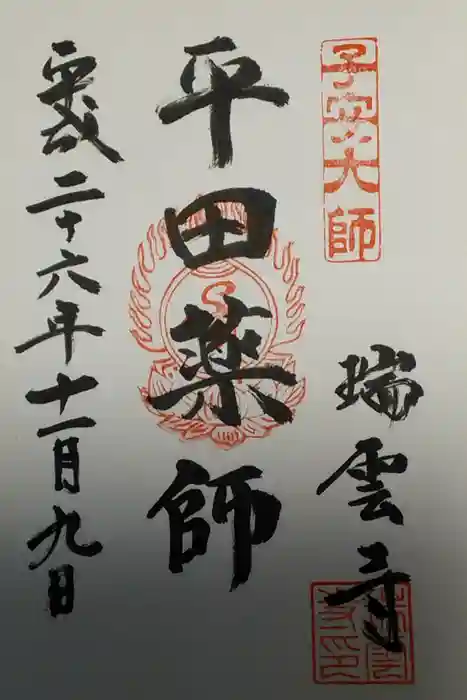 子安大師
瑞雲寺
平田薬師
平成二十六年十一月九日